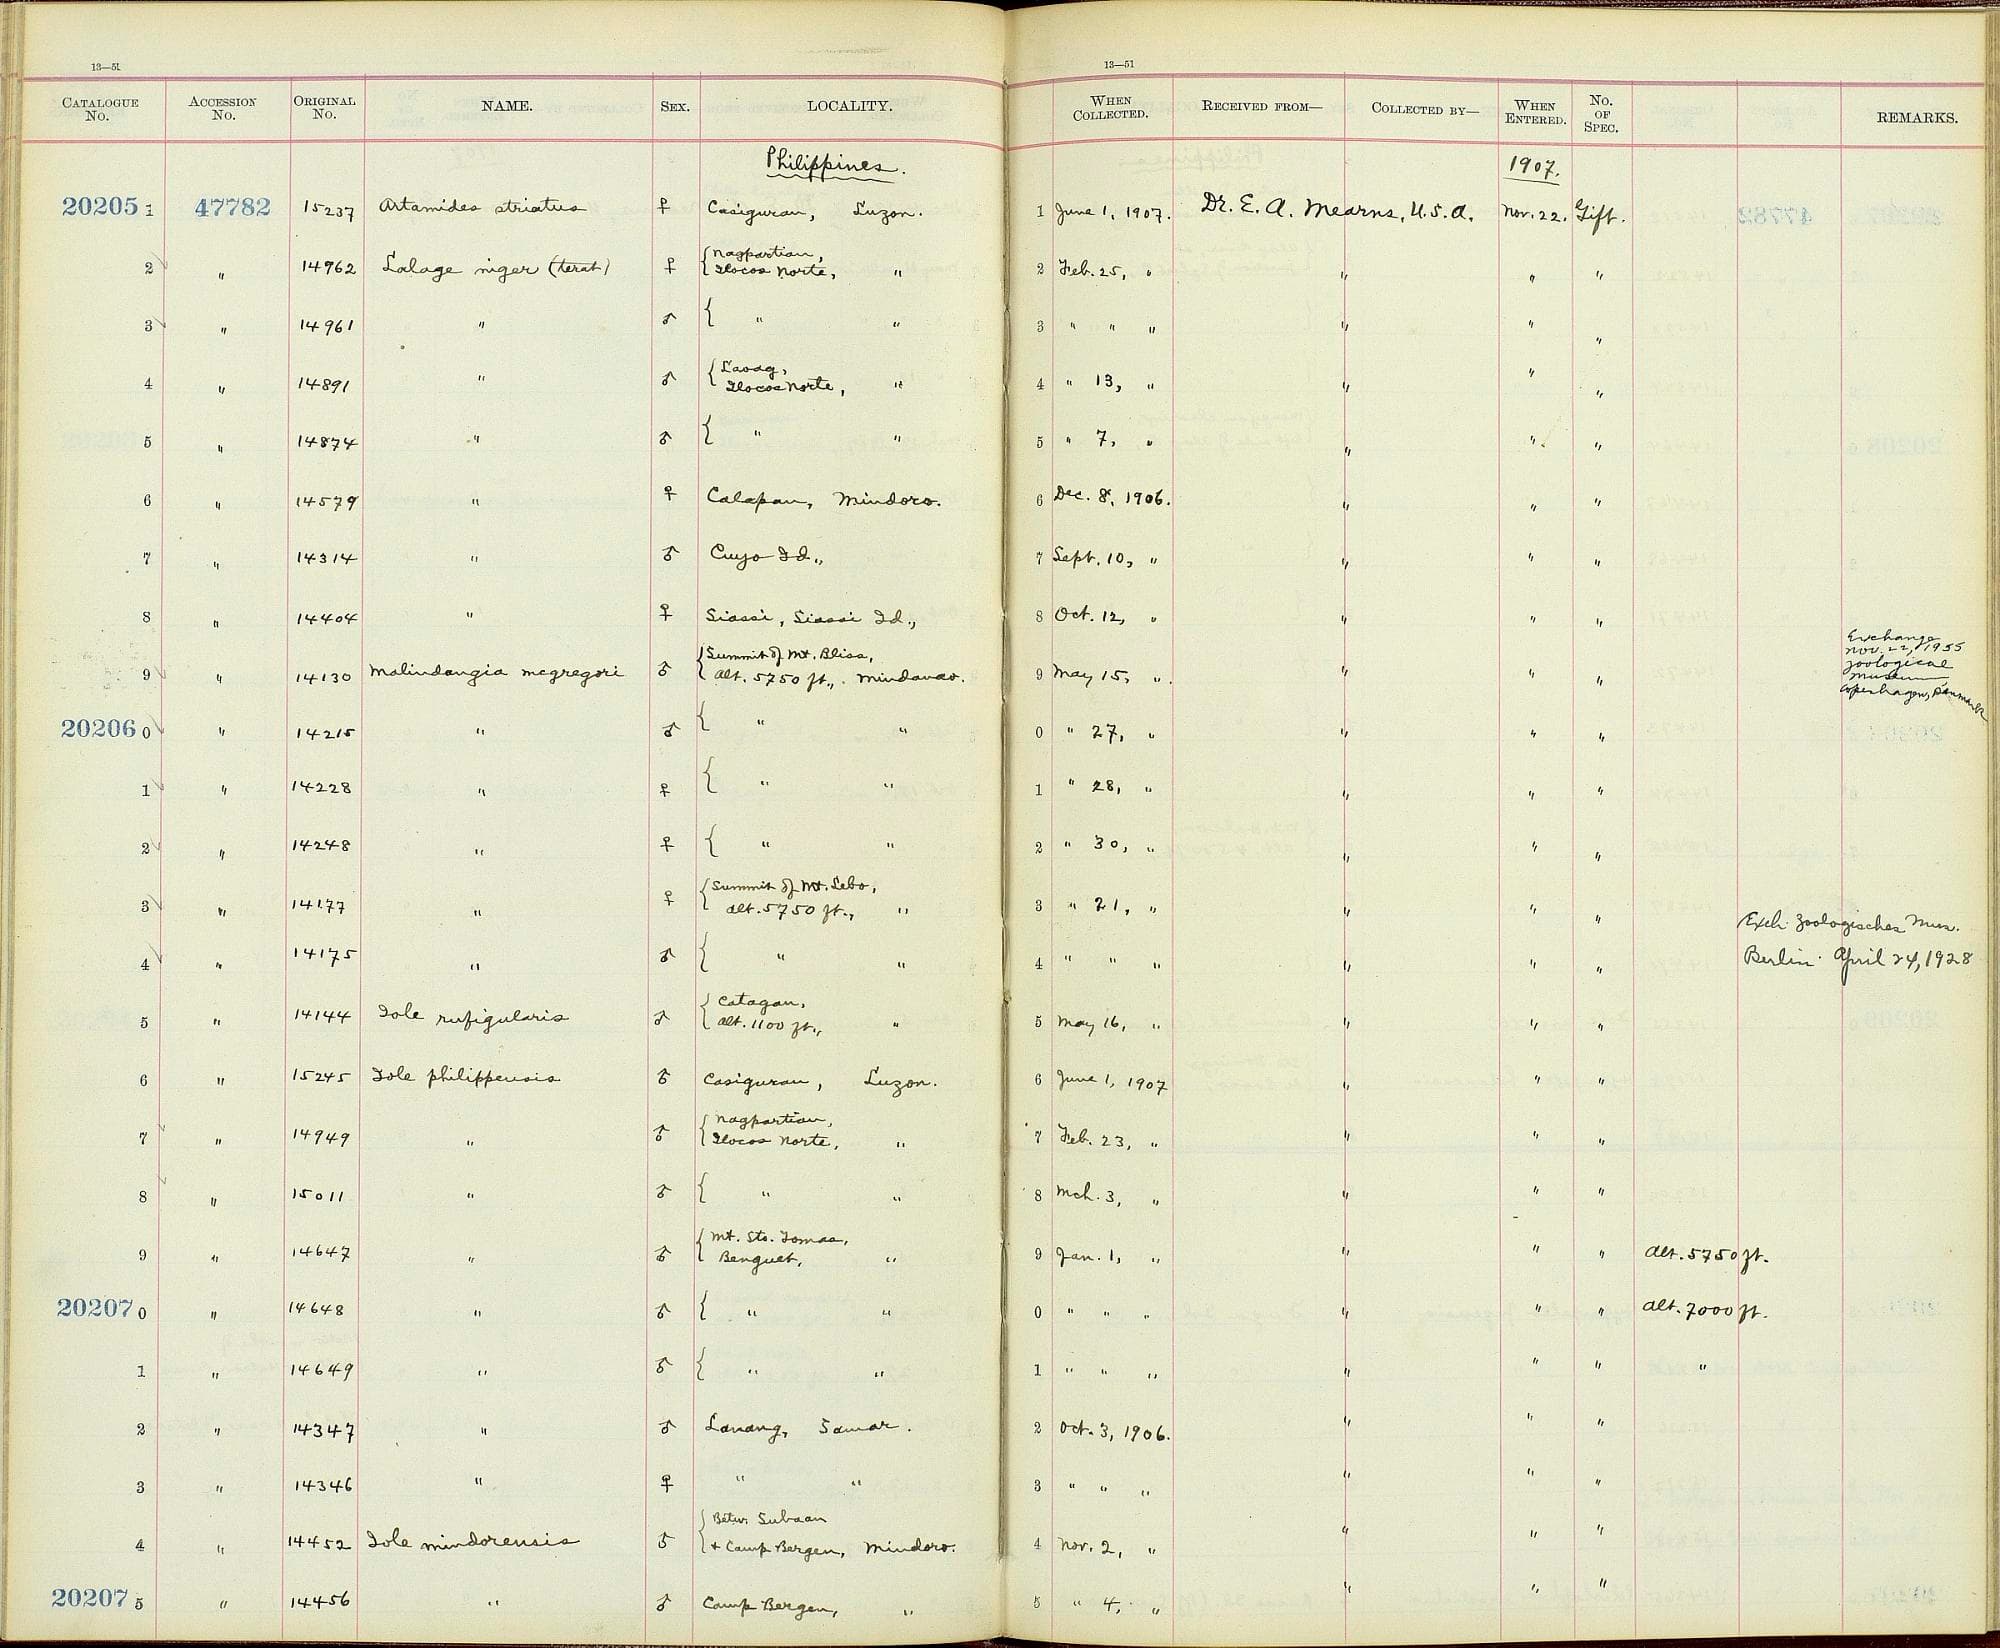 13—51 13—51
CATALOGUE No. ACCESSION No. ORIGINAL No. NAME. SEX. LOCALITY. WHEN COLLECTED. RECEIVED FROM— COLLECTED BY— WHEN ENTERED. No. OF SPEC. REMARKS.
Philippines. 1907.
20205 1 47782 15237 Artamides striatus ♀ Casiguran, Luzon. 1 June 1, 1907. Dr. E. A. Mearns, U.S.A. Nov. 22. Gift.
2 " 14962 Lalage niger (terat) ♀ { Nagpartian, Ilocos Norte, " 2 Feb. 25, " " " "
3 " 14961 " ♂ { " " 3 " " " " " "
4 " 14891 " ♂ { Laoag, Ilocos Norte, " 4 " 13, " " " "
5 " 14874 " ♂ { " " 5 " 7, " " " "
6 " 14579 " ♀ Calapan, Mindoro. 6 Dec. 8, 1906. " " "
7 " 14314 " ♂ Cuyo Id., 7 Sept. 10, " " " "
8 " 14404 " ♀ Siassi, Siassi Id., 8 Oct. 12, " " " "
9 " 14130 Malindangia mcgregori ♂ { Summit of Mt. Bliss, Alt. 5750 ft., Mindanao. 9 May 15, " " " " Exchange Nov. 22, 1955 Zoological Museum Copenhagen, Danmark
20206 0 " 14215 " ♂ { " " 0 " 27, " " " "
1 " 14228 " ♀ { " " 1 " 28, " " " "
2 " 14248 " ♀ { " " 2 " 30, " " " "
3 " 14177 " ♀ { Summit of Mt. Lebo, alt. 5750 ft., " 3 " 21, " " " "
4 " 14175 " ♂ { " " 4 " " " " " " Exch. Zoologisches Mus. Berlin. April 24, 1928
5 " 14144 Iole rufigularis ♂ { Catagan, alt. 1100 ft., " 5 May 16, " " " "
6 " 15245 Iole philippensis ♂ Casiguran, Luzon. 6 June 1, 1907 " " "
7 " 14949 " ♂ { Nagpartian, Ilocos Norte, " 7 Feb. 23, " " " "
8 " 15011 " ♂ { " " 8 Mch. 3, " " " "
9 " 14647 " ♂ { Mt. Sto. Tomas, Benguet, " 9 Jan. 1, " " " " Alt. 5750 ft.
20207 0 " 14648 " ♂ { " " 0 " " " " " " Alt. 7000 ft.
1 " 14649 " ♂ { " " 1 " " " " " " "
2 " 14347 " ♂ Lanang, Samar. 2 Oct. 3, 1906. " " "
3 " 14346 " ♀ " " 3 " " " " " "
4 " 14452 Iole mindorensis ♂ { Betw. Subaan + Camp Bergen, Mindoro. 4 Nov. 2, " " " "
20207 5 " 14456 " ♂ Camp Bergen, " 5 " 4, " " " "